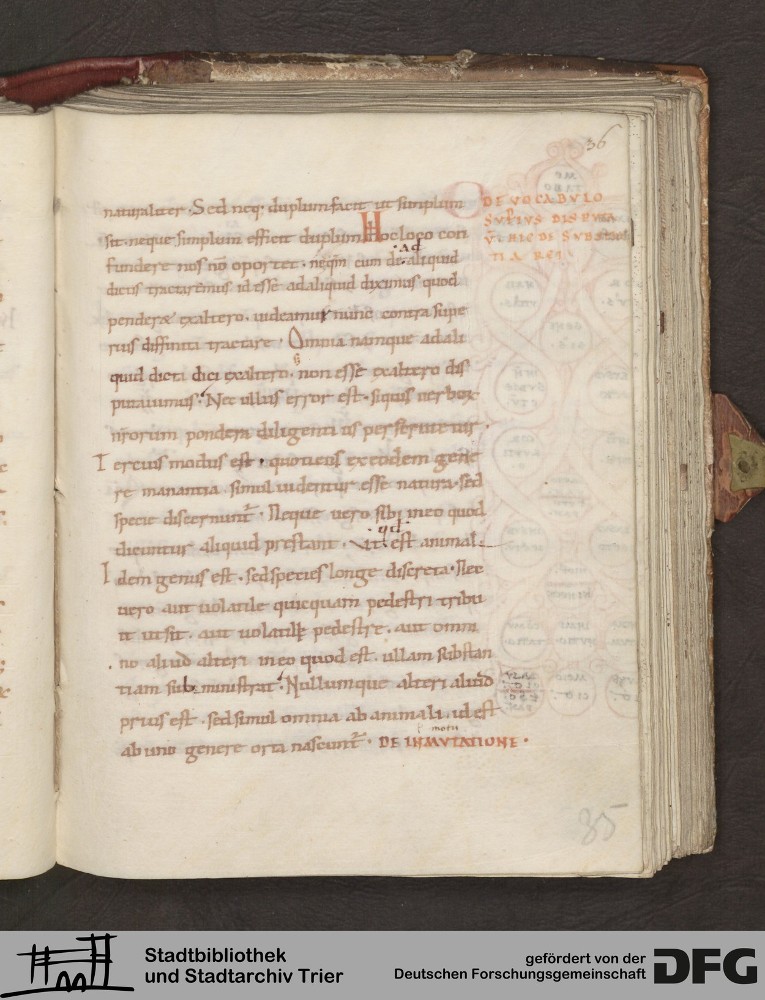 36
naturaliter. Sed neq; duplum facit ut simplum
sit. neque simplum efficit duplum. Hoc loco con
fundere nos nō oportet. neq̄m cum de ad aliquid
dictis tractaremus id esse ad aliquid diximus quod
penderæ ex altero. uideamur nunc contra supe
rius diffinita tractare. Omnia namque ad ali
quid dicta dici ex altero. non esse ex altero dis
putauimus. Nec ullus error est. siquis uerborū
nr̄orum pondera diligentius perscrutetur.
Tercius modus est. quotiens ex eodem gene
re manantia simul uidentur esse natura. sed
specie discernunt̄. Neque uero sibi in eo quod
dicuntur aliquid prestant. Ut qd est animal.
Idem genus est. sed species longe discreta. Nec
uero aut uolatile quicquam pedestri tribu
it ut sit. aut uolatili pedestre. aut omni
no aliud alteri in eo quod est. ullam substan
tiam subministrat. Nullumque alteri aliud
prius est. sed simul omnia ab animali. id est
ab uno genere orta nascunt̄. DE INMUTATIONE.
motu
DE VOCABULO
SUPIUS DISPUTA
V̄ HIC DE SUBS
TIA REI.
35
Stadtbibliothek
und Stadtarchiv Trier
gefördert von der
Deutschen Forschungsgemeinschaft
DFG